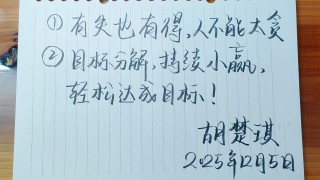 ① 有失也有得,人不能太贪
② 目标分解,持续小赢,
轻松达成目标!
胡楚琪
2025年12月5日